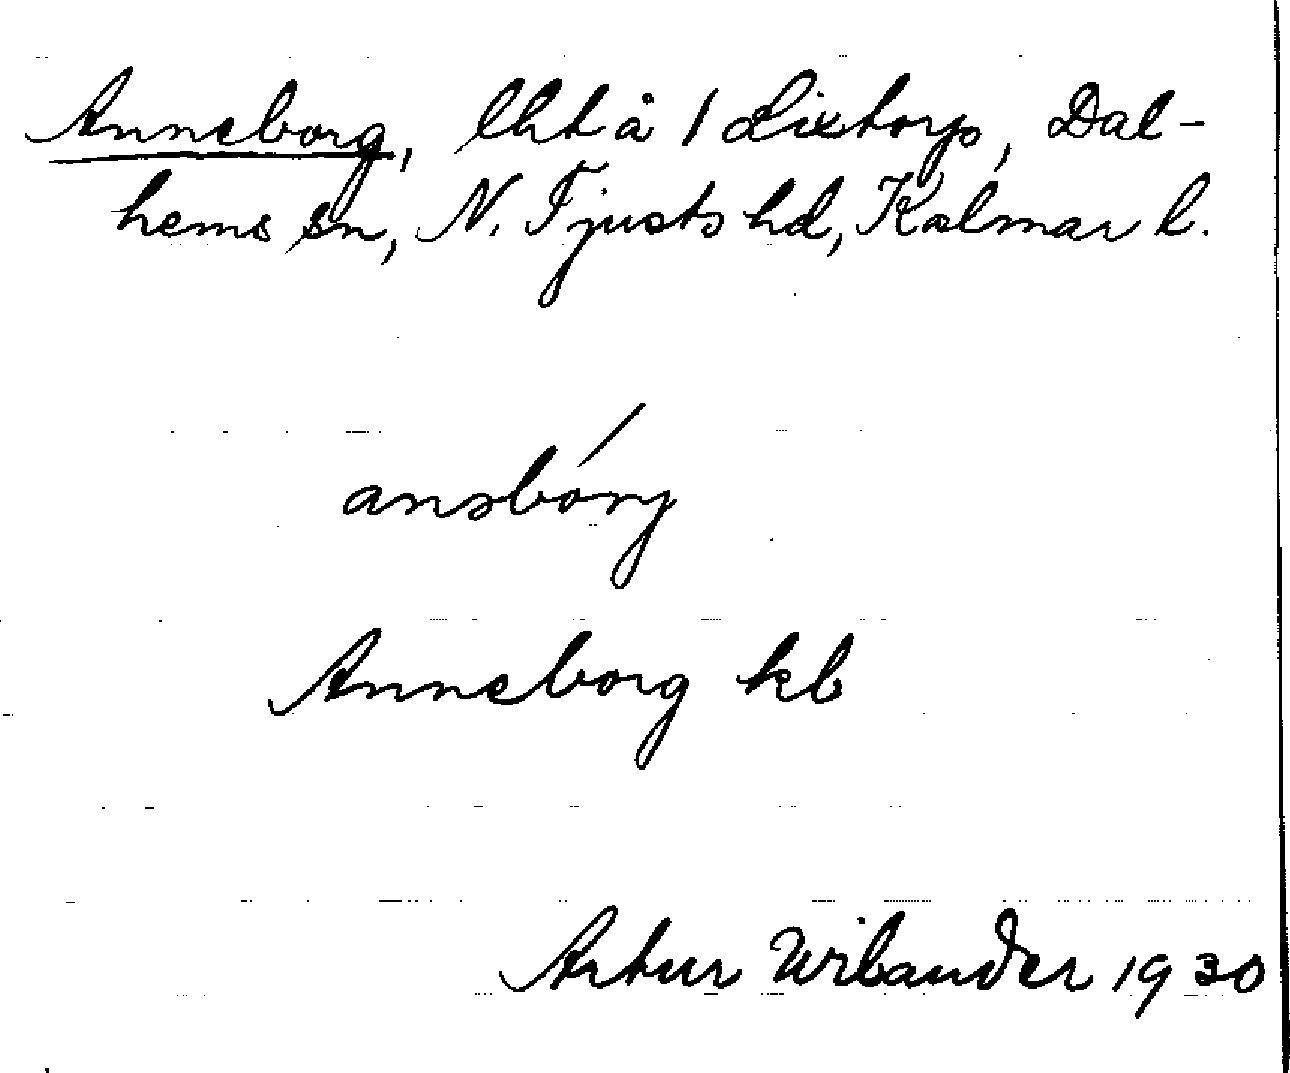 Anneborg, lht å 1 Lixtorp, Dal-
hems sn, N. Tjusts hd, Kalmar l.
anəbórj
Anneborg kb
Artur Wilander 1930